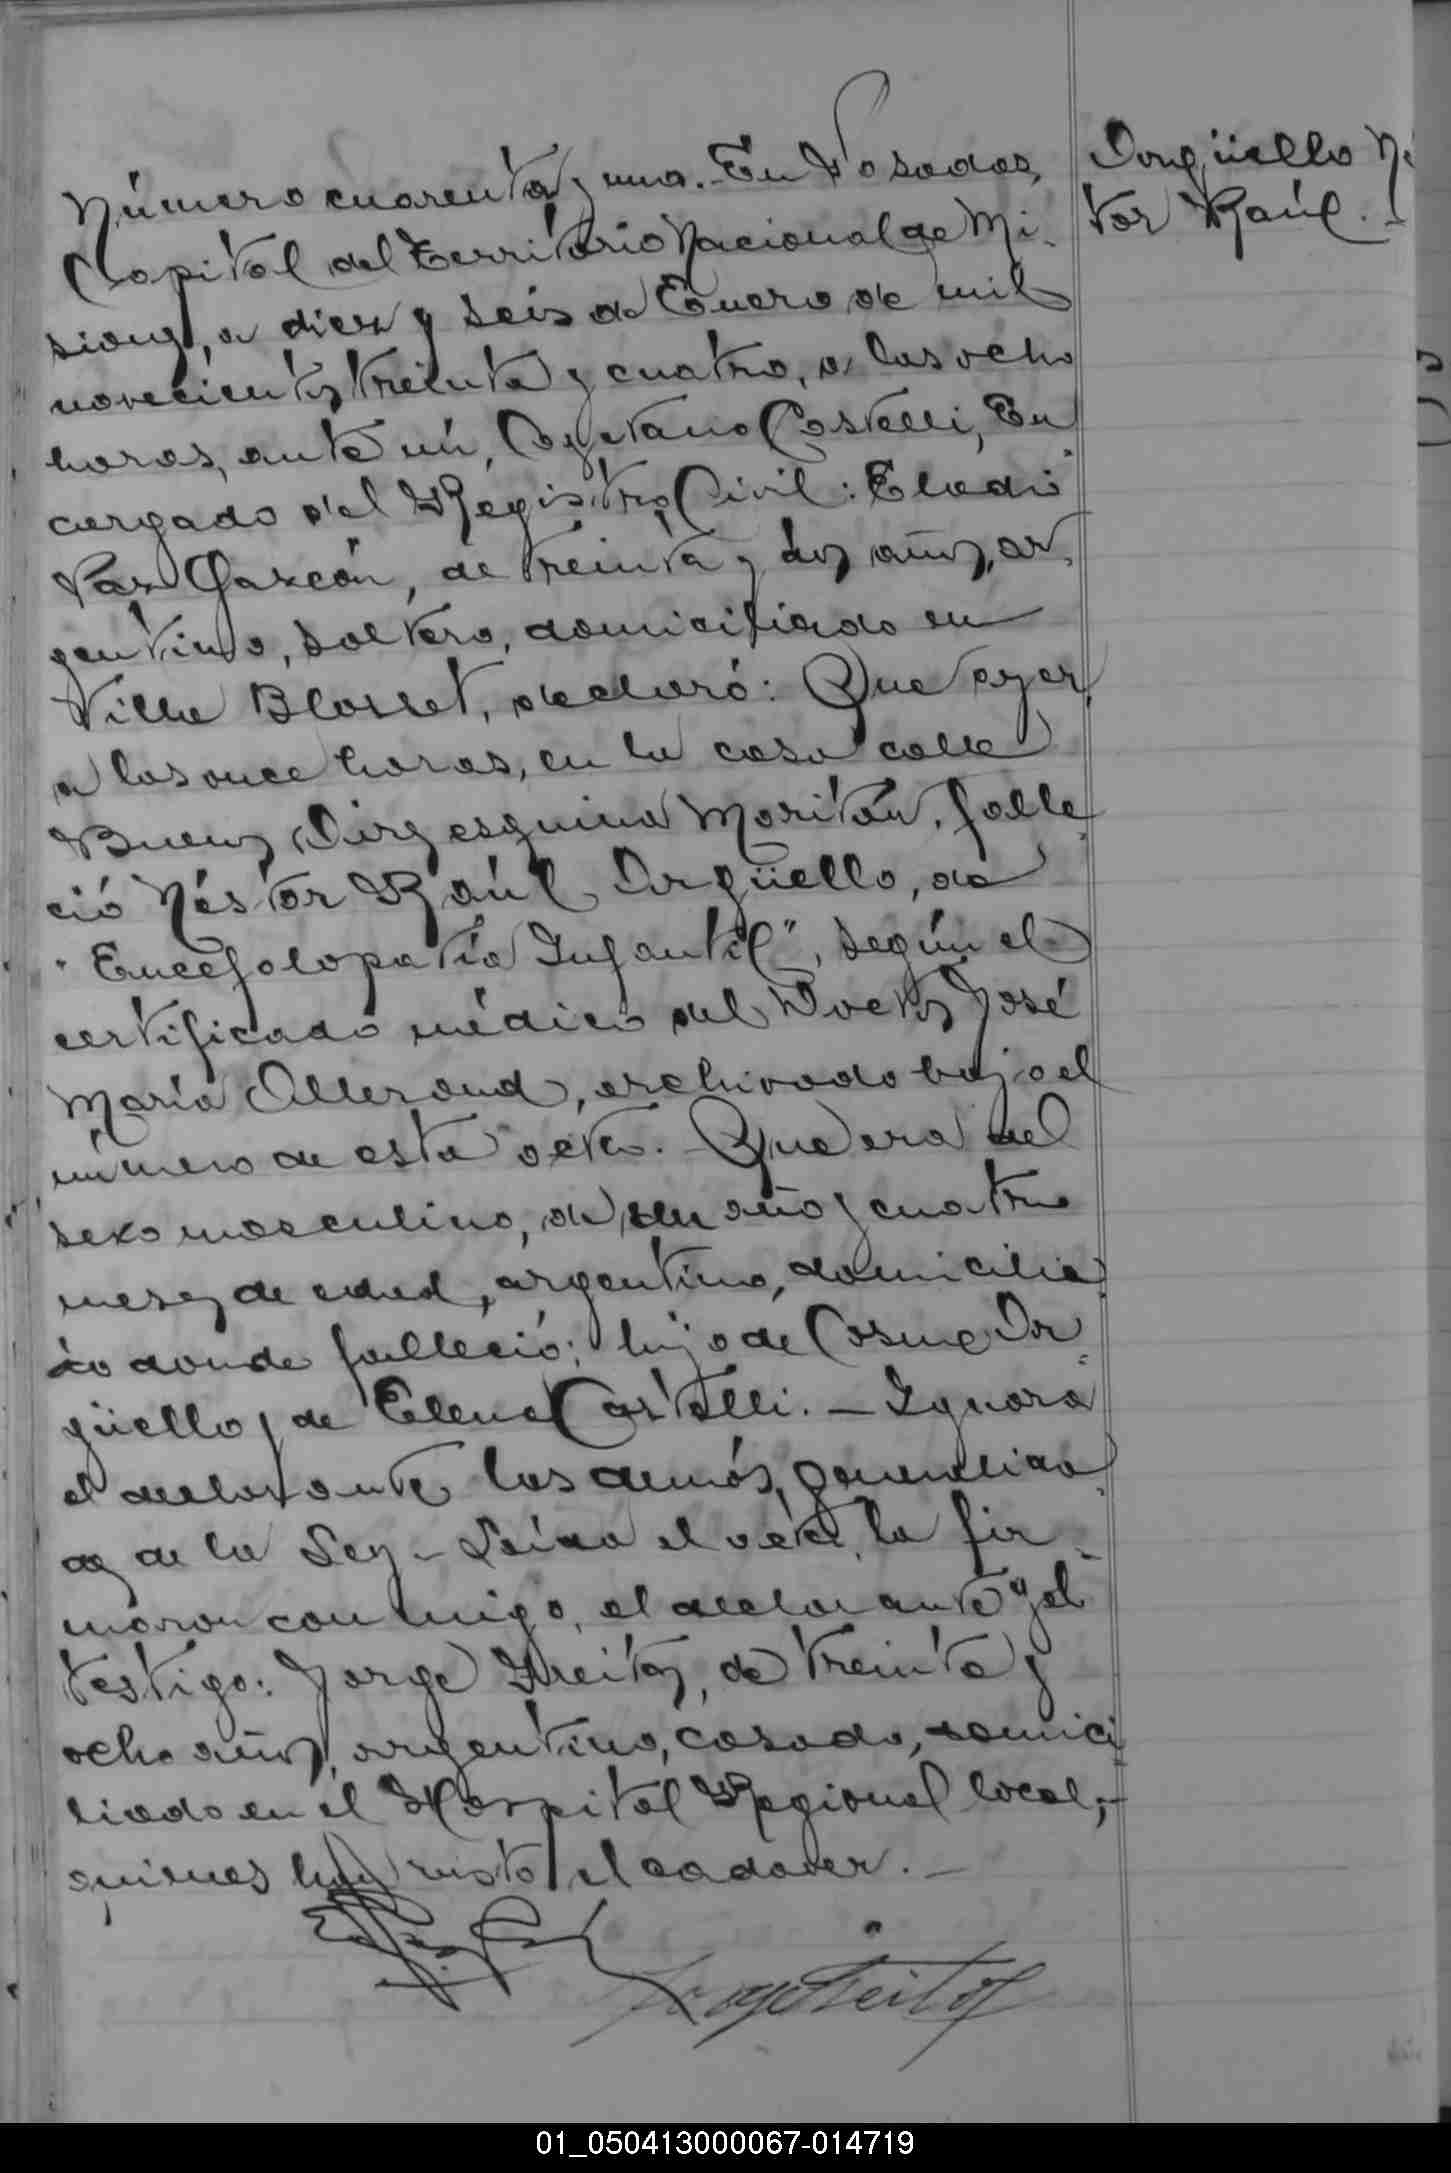 Número cuarenta y uno.- En Posadas,
Capital del Territorio Nacional de Mi-
siones, a diez y seis de Enero de mil
novecientos treinta y cuatro, a las ocho
horas, ante mí, Cayetano Castelli, En-
cargado del Registro Civil: Eladio
Paz Garzón, de treinta y dos años, ar-
gentino, soltero, domiciliado en
Villa Blosset, declaró: Que ayer,
a las once horas, en la casa calle
Buenos Aires esquina Moritán, falle-
ció Néstor Raúl Argüello, de
"Encefalopatía Infantil", según el
certificado médico del Doctor José
María Allerand, archivado bajo el
número de esta acta.- Que era del
sexo masculino, de un año y cuatro
meses de edad, argentino, domicilia-
do donde falleció; hijo de Cosme Ar-
güello y de Elena Castelli.- Ignora
el declarante las demás generalida-
des de la Ley.- Leída el acta, la fir-
maron conmigo, el declarante y el
testigo: Jorge Freitas, de treinta y
ocho años, argentino, casado, domici-
liado en el Hospital Regional local,-
quienes han visto el cadaver.-
Jorge Freitas
Argüello Né
tor Raúl.-
01_050413000067-014719